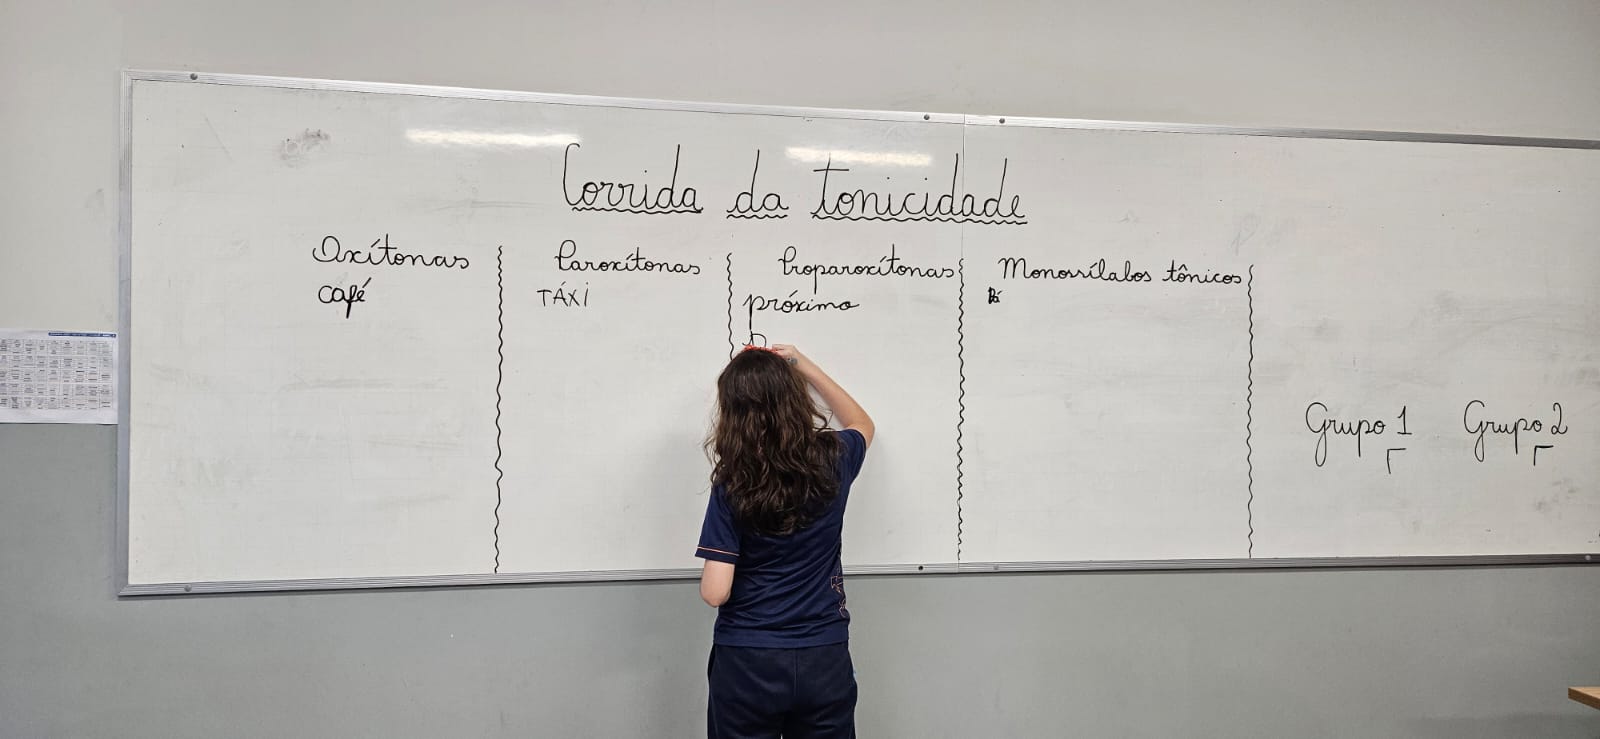 Corrida da tonicidade
Oxítonas
café
Paroxítonas
TÁXI
Proparoxítonas
próximo
Monossílabos tônicos
Pá
Grupo 1
Grupo 2